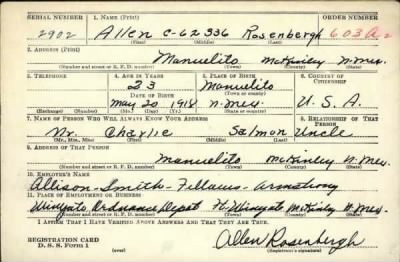 SERIAL NUMBER 1. NAME (Print) ORDER NUMBER
2902 Allen C-62336 Rosenbergh 603A
(First) (Middle) (Last)
2. ADDRESS (Print)
Manuelito McKinley N. Mex.
(Number and street or R. F. D. number) (Town) (County) (State)
3. TELEPHONE 4. AGE IN YEARS 5. PLACE OF BIRTH 6. COUNTRY OF CITIZENSHIP
23 Manuelito
DATE OF BIRTH (Town or county)
May 20 1918 N. Mex. U.S.A.
(Exchange) (Number) (Mo.) (Day) (Yr.) (State or country)
7. NAME OF PERSON WHO WILL ALWAYS KNOW YOUR ADDRESS 8. RELATIONSHIP OF THAT PERSON
Mr. Charlie Salmon Uncle
(Mr., Mrs., Miss) (First) (Middle) (Last)
9. ADDRESS OF THAT PERSON
Manuelito McKinley N. Mex.
(Number and street or R. F. D. number) (Town) (County) (State)
10. EMPLOYER'S NAME
Allison-Smith-Fellows-Armstrong
11. PLACE OF EMPLOYMENT OR BUSINESS
Wingate Ordnance Depot Ft. Wingate McKinley N. Mex.
(Number and street or R. F. D. number) (Town) (County) (State)
I AFFIRM THAT I HAVE VERIFIED ABOVE ANSWERS AND THAT THEY ARE TRUE.
REGISTRATION CARD
D. S. S. Form 1 (over) Allen Rosenbergh
(Registrant's signature)